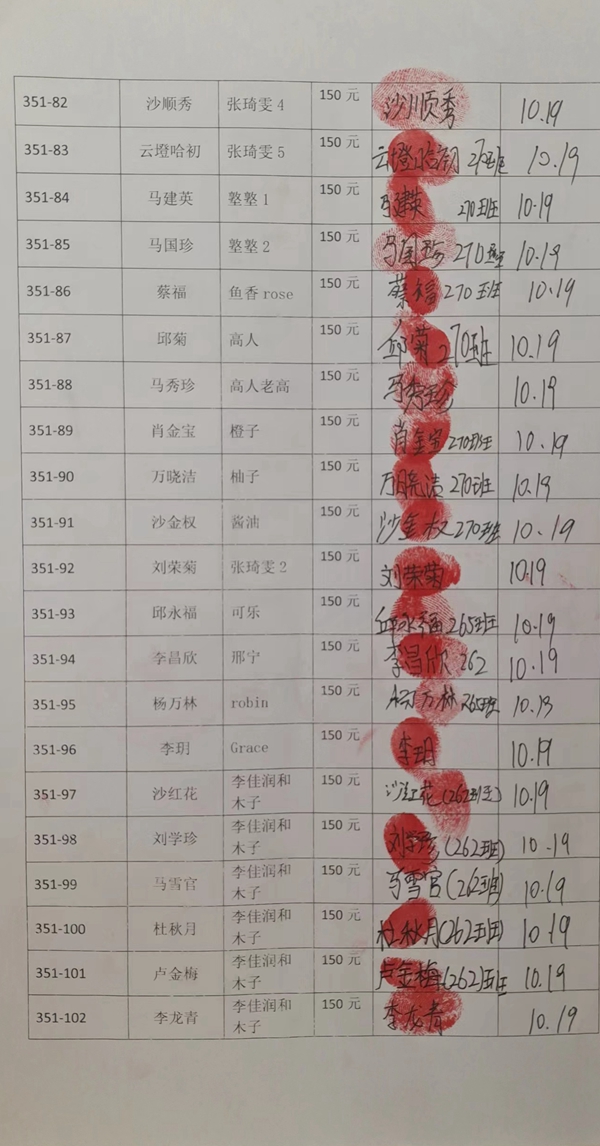 351-82 沙顺秀 张琦雯 4 150 元 沙顺秀 10.19
351-83 云墱哈初 张琦雯 5 150 元 云墱哈初 270班 10.19
351-84 马建英 墪墪 1 150 元 马建英 270班 10.19
351-85 马国珍 墪墪 2 150 元 马国珍 270班 10.19
351-86 蔡福 鱼香 rose 150 元 蔡福 270班 10.19
351-87 邱菊 高人 150 元 邱菊 270班 10.19
351-88 马秀珍 高人老高 150 元 马秀珍 10.19
351-89 肖金宝 橙子 150 元 肖金宝 270班 10.19
351-90 万晓洁 柚子 150 元 万晓洁 270班 10.19
351-91 沙金权 酱油 150 元 沙金权 270班 10.19
351-92 刘荣菊 张琦雯 2 150 元 刘荣菊 10.19
351-93 邱永福 可乐 150 元 邱永福 265班 10.19
351-94 李昌欣 邢宁 150 元 李昌欣 262 10.19
351-95 杨万林 robin 150 元 杨万林 265班 10.13
351-96 李玥 Grace 150 元 李玥 10.19
351-97 沙红花 李佳润和 150 元 沙红花(262班) 10.19
木子
351-98 刘学珍 李佳润和 150 元 刘学珍(262班) 10.19
木子
351-99 马雪官 李佳润和 150 元 马雪官(262班) 10.19
木子
351-100 杜秋月 李佳润和 150 元 杜秋月(262班) 10.19
木子
351-101 卢金梅 李佳润和 150 元 卢金梅(262)班 10.19
木子
351-102 李龙青 李佳润和 150 元 李龙青 10.19
木子